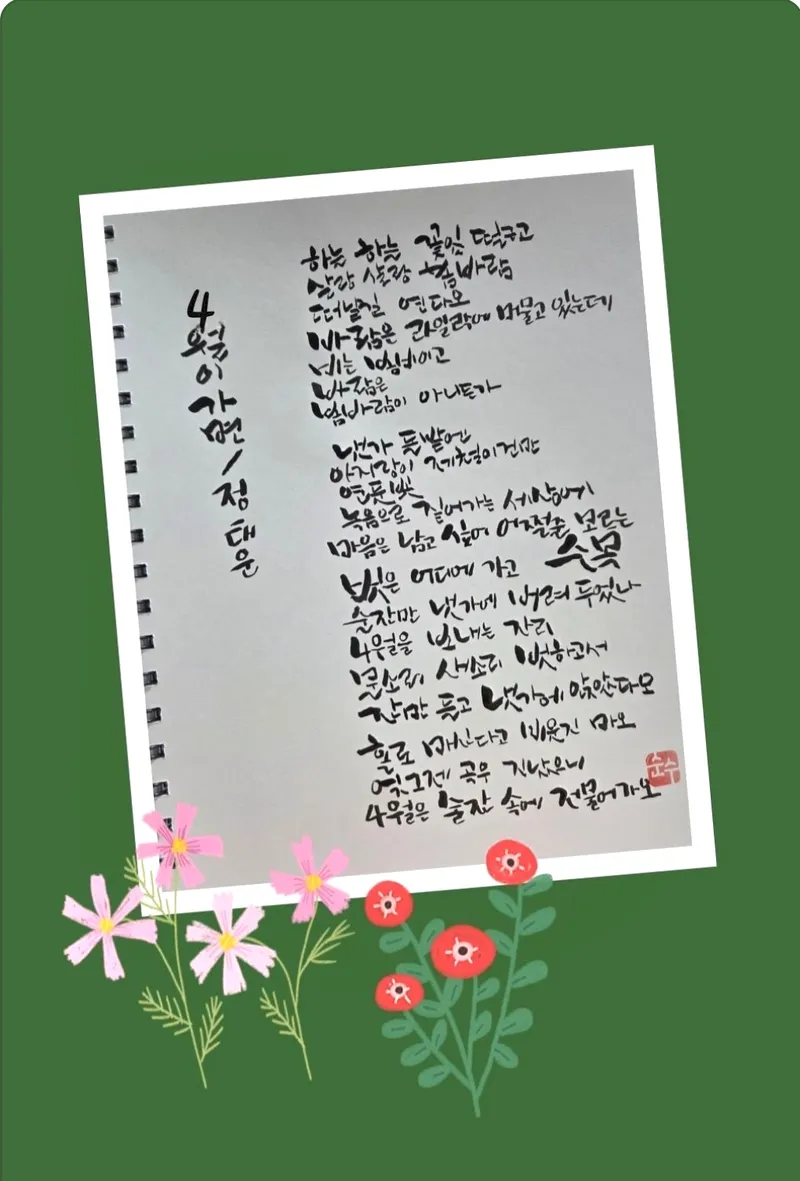 4월이 가면 / 정태운
하늘 하늘 꽃잎 떨구고
살랑 살랑 봄바람
떠날길 연다오
바람은 라일락에 머물고 있는데
비는 봄비이고
바람은
봄바람이 아니든가
냇가 풀밭엔
아지랑이 제철이건만
연둣빛
녹음으로 짙어가는 세상에
마음은 남고 싶어 어쩔줄 모르는
벗은 어디에 가고
술잔만 냇가에 버려 두었나
4월을 보내는 자리
물소리 새소리 벗하고서
잔만 들고 냇가에 앉았다오
홀로 마신다고 비웃진 마오
엊그제 곡우 지났으니
4월은 술잔 속에 저물어가오
순수